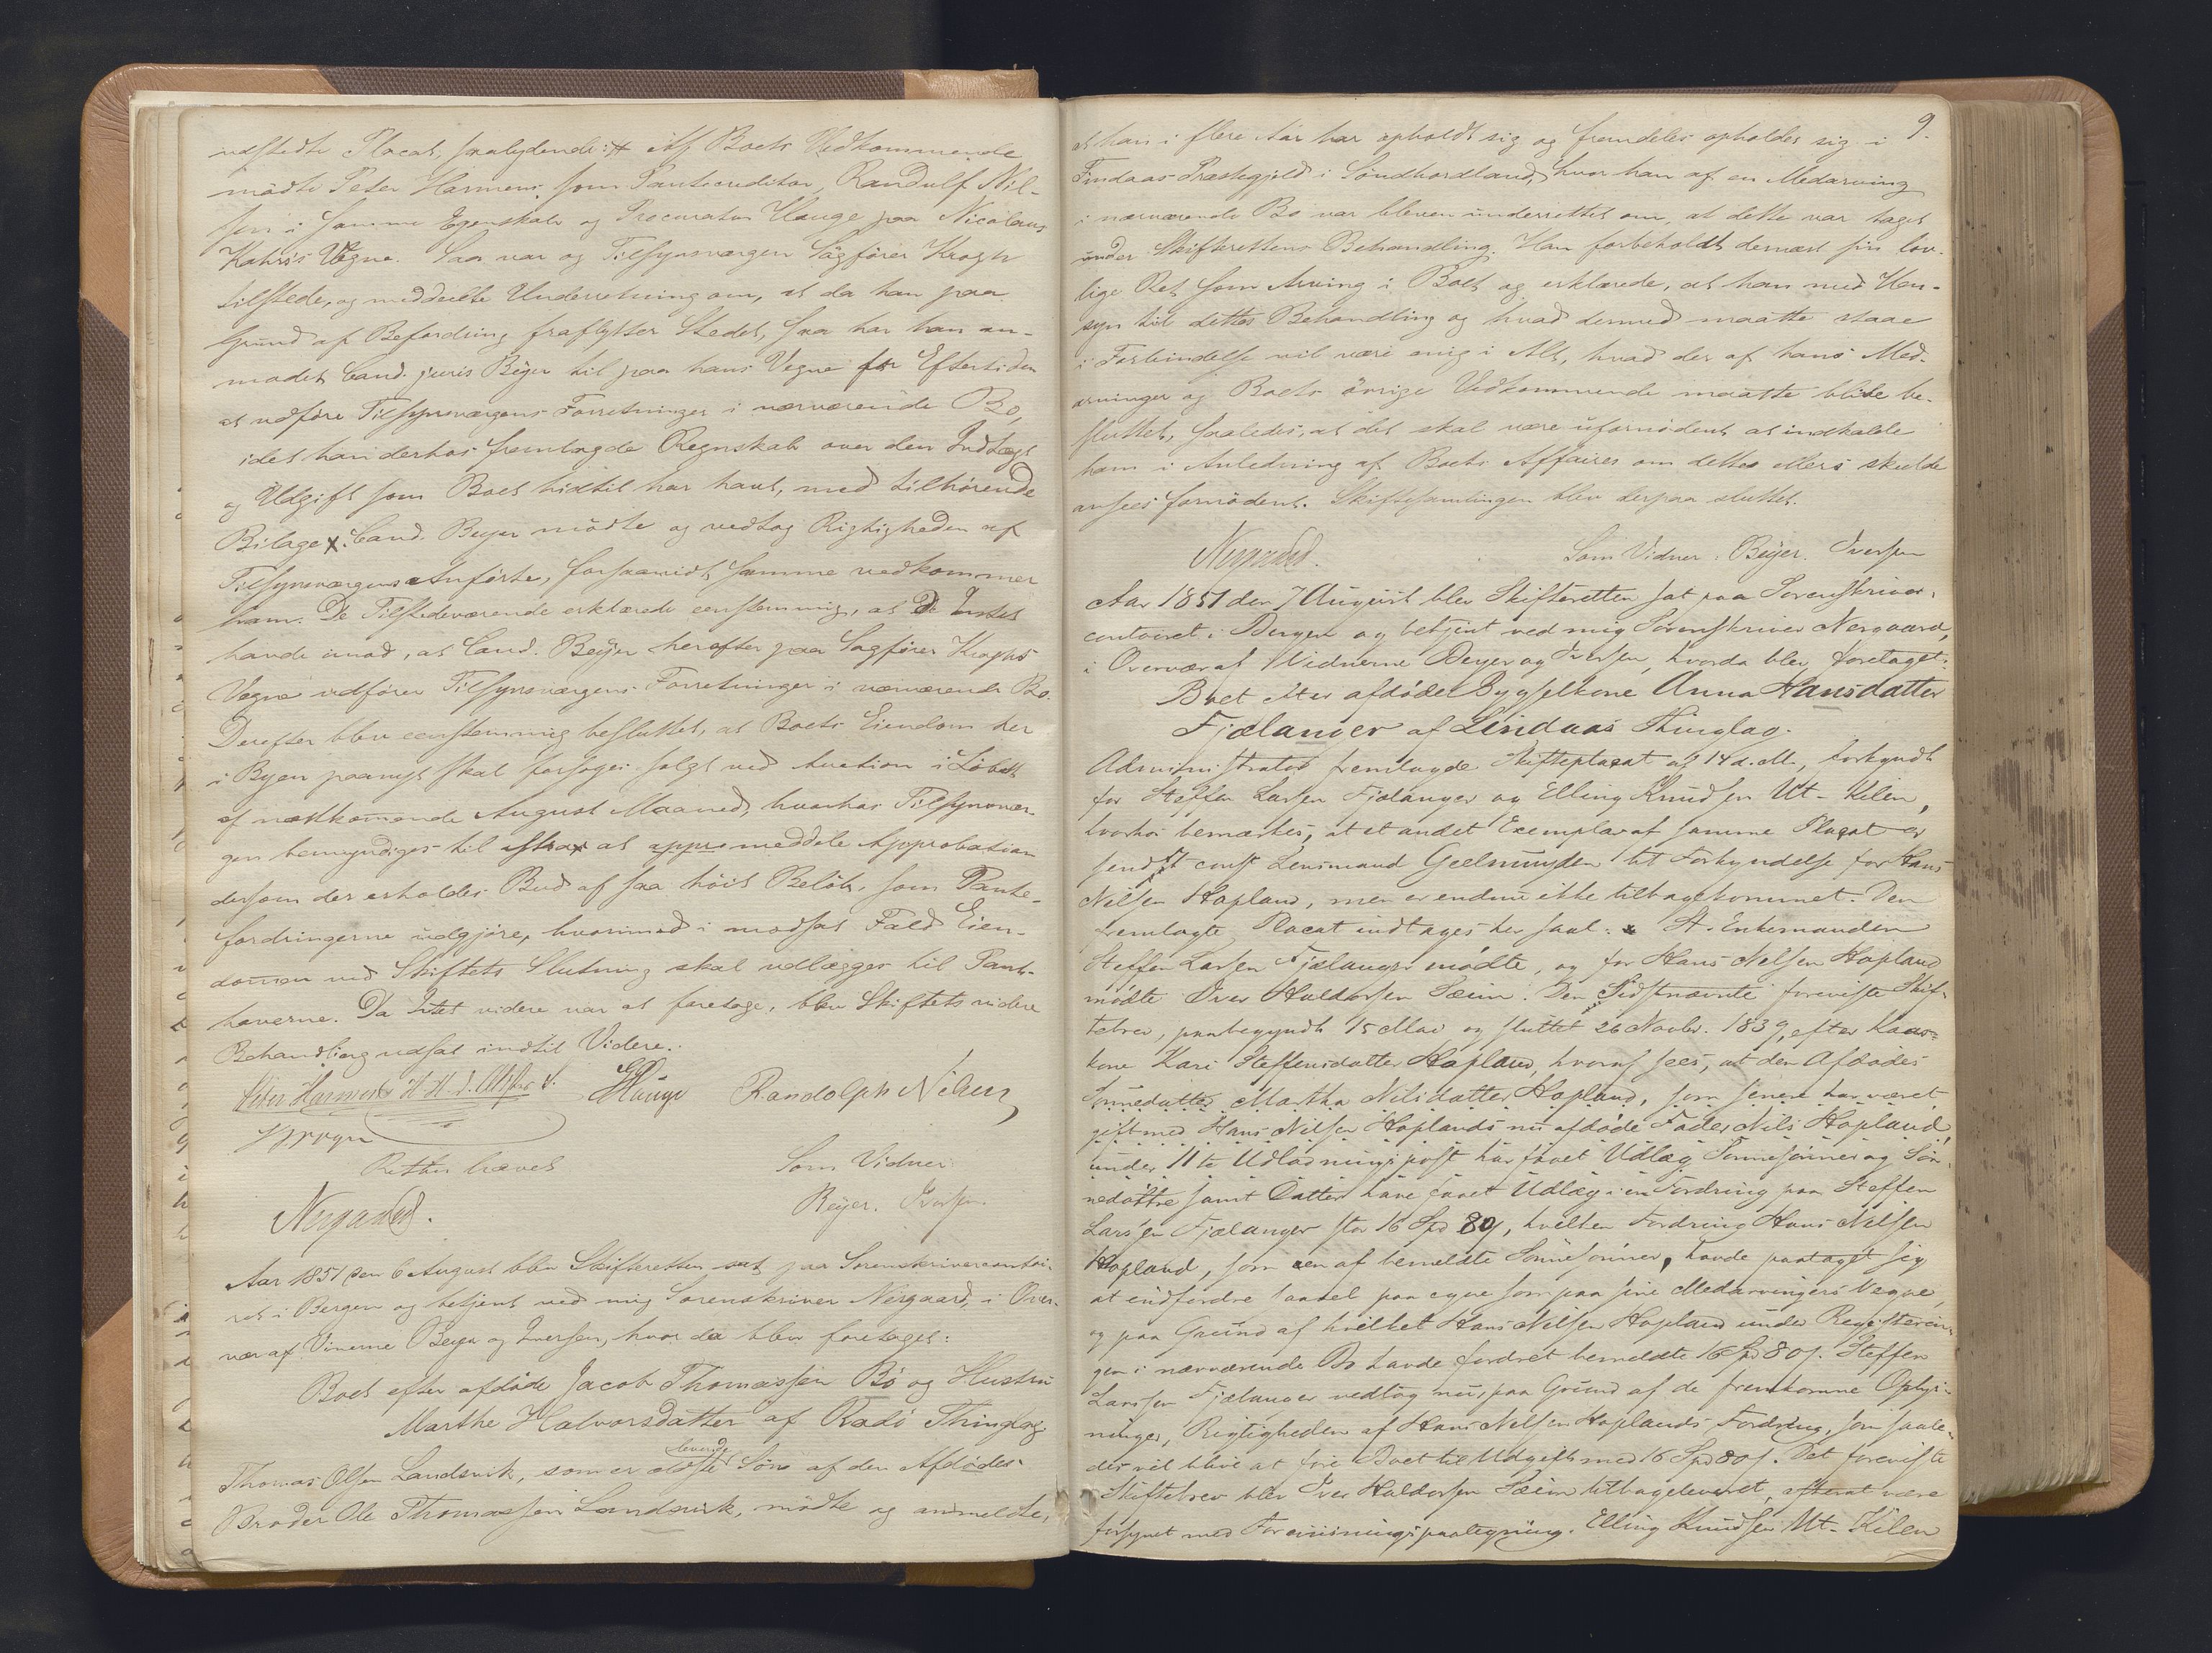 udstedte Placat, saalydende: # Af Boets Vedkommende
mødte Peter Harmens som Pantecreditor, Randulf Nil-
sen i samme Egenskab og Procurator Hauge paa Nicolaus
Kahrs's Vegne. Saa var og Tilsynsværgen Sagfører Krogh
tilstede, og meddeelte Underretning om, at da han paa
Grund af Befordring fraflytter Stedet, saa har han an-
modet Cand. juris Beyer til paa hans Vegne for Eftertiden
at udføre Tilsynsværgens Forretninger i nærværende Bo,
idet han derhos fremlagde Regnskab over den Indtægt
og Udgift som Boet hidtil har havt, med tilhørende
Bilage X. Cand. Beyer mødte og vedtog Rigtigheden af
Tilsynsværgens Anførte, forsaavidt samme vedkommer
ham. De Tilstedeværende erklærede eenstemmig, at De Intet
havde imod, at Cand. Beyer herefter paa Sagfører Kroghs
Vegne udfører Tilsynsværgens Forretninger i nærværende Bo.
Derefter blev eenstemmig besluttet, at Boets Eiendom her
i Byen paanyt skal forsøges solgt ved Auction i Løbet
af næstkommende August Maaned, hvorhos Tilsynsvær-
gen bemyndiges til strax at appro meddele Approbation
dersom der erholdes Bud af saa høit Beløb, som Pante-
fordringerne udgjøre, hvorimod i modsat Fald Eien-
dommen ved Skiftets Slutning skal udlægges til Pant-
haverne. Da Intet videre var at foretage, blev Skiftets videre
Behandling udsat indtil Videre.
Peter Harmens Hauge Randolph Nilsen
Krogh
Retten hævet
Som Vidner
Nergaard. Beyer. Iversen.
Aar 1851 den 6 August blev Skifteretten sat paa Sorenskrivercontoi-
ret i Bergen og betjent ved mig Sorenskriver Nergaard, i Over-
vær af Vinerne Beyer og Iversen, hvor da blev foretaget:
Boet efter afdøde Jacob Thomassen Bø og Hustru
Marthe Halvorsdatter af Radø Thinglag.
levende
Thomas Olsen Landsvik, som er ældste Søn af den Afdødes
Broder Ole Thomassen Landsvik, mødte og anmeldte,
9.
at han i flere Aar har opholdt sig og fremdeles opholder sig i
Findaas Præstegjeld i Søndhordland, hvor han af en Medarving
i nærværende Bo var bleven underrettet om, at dette var taget
under Skifterettens Behandling. Han forbeholdt dernæst sin lov-
lige Ret som Arving i Boet og erklærede, at han med Hen-
syn til dettes Behandling og hvad dermed maatte staae
i Forbindelse vil være enig i Alt, hvad der af hans Med-
arvinger og Boets øvrige Vedkommende maatte blive be-
sluttet, saaledes, at det skal være ufornødent at indkalde
ham i Anledning af Boets Affairer om dette ellers skulde
ansees fornødent. Skiftesamlingen blev derpaa sluttet.
Nergaard. Som Vidner: Beyer. Iversen
Aar 1851 den 7 August blev Skifteretten sat paa Sorenskriver-
contoiret i Bergen og betjent ved mig Sorenskriver Nergaard,
i Overvær af Widnerne Beyer og Iversen, hvorda blev foretaget:
Boet efter afdøde Bygselkone Anna Hansdatter
Fjælanger af Lindaas Thinglag.
Administrator fremlagde Skifteplacat af 14 d. M., forkyndt
for Steffen Larsen Fjælanger og Elling Knudsen Ut-Kilen,
hvorhos bemærkes, at et andet Exemplar af samme Placat er
sendt const Lensmand Geelmuyden til Forkyndelse for Hans
Nilsen Hopland, men er endnu ikke tilbagekommet. Den
fremlagte Placat indtages her saal: Enkemanden
Steffen Larsen Fjælanger mødte, og for Hans Nilsen Hopland
mødte Iver Haldorsen Sæim. Den Sidstnævnte foreviste Skif-
tebrev, paabegyndt 15 Mai og sluttet 26 Novbr. 1839, efter Huus-
kone Kari Steffensdatter Hopland, hvoraf sees, at den Afdødes
Sønnedatter Martha Nilsdatter Hopland, som senere har været
gift med Hans Nilsen Hoplands nu afdøde Fader Nils Hopland,
under 11te Udlodningspost har faaet Udlæg Sønnesønner og Søn-
nedøttre samt Datter have faaet Udlæg i en Fordring paa Steffen
Larsen Fjælanger stor 16 Spd 80 s, hvilken Fordring Hans Nilsen
Hopland, som een af bemeldte Sønnesønner, havde paataget sig
at indfordre saavel paa egne som paa sine Medarvingers Vegne,
og paa Grund af hvilket Hans Nilsen Hopland under Registerin-
gen i nærværende Bo havde fordret bemeldte 16 Spd 80 s. Steffen
Larsen Fjælanger vedtog nu, paa Grund af de fremkomne Oplys-
ninger, Rigtigheden af Hans Nilsen Hoplands Fordring, som saale-
des vil blive at føre Boet til Udgift med 16 Spd 80 s. Det foreviste
Skiftebrev blev Iver Haldorsen Sæim tilbageleveret, efterat være
forsynet med Foreviisningspaategning. Elling Knudsen Ut-Kilen